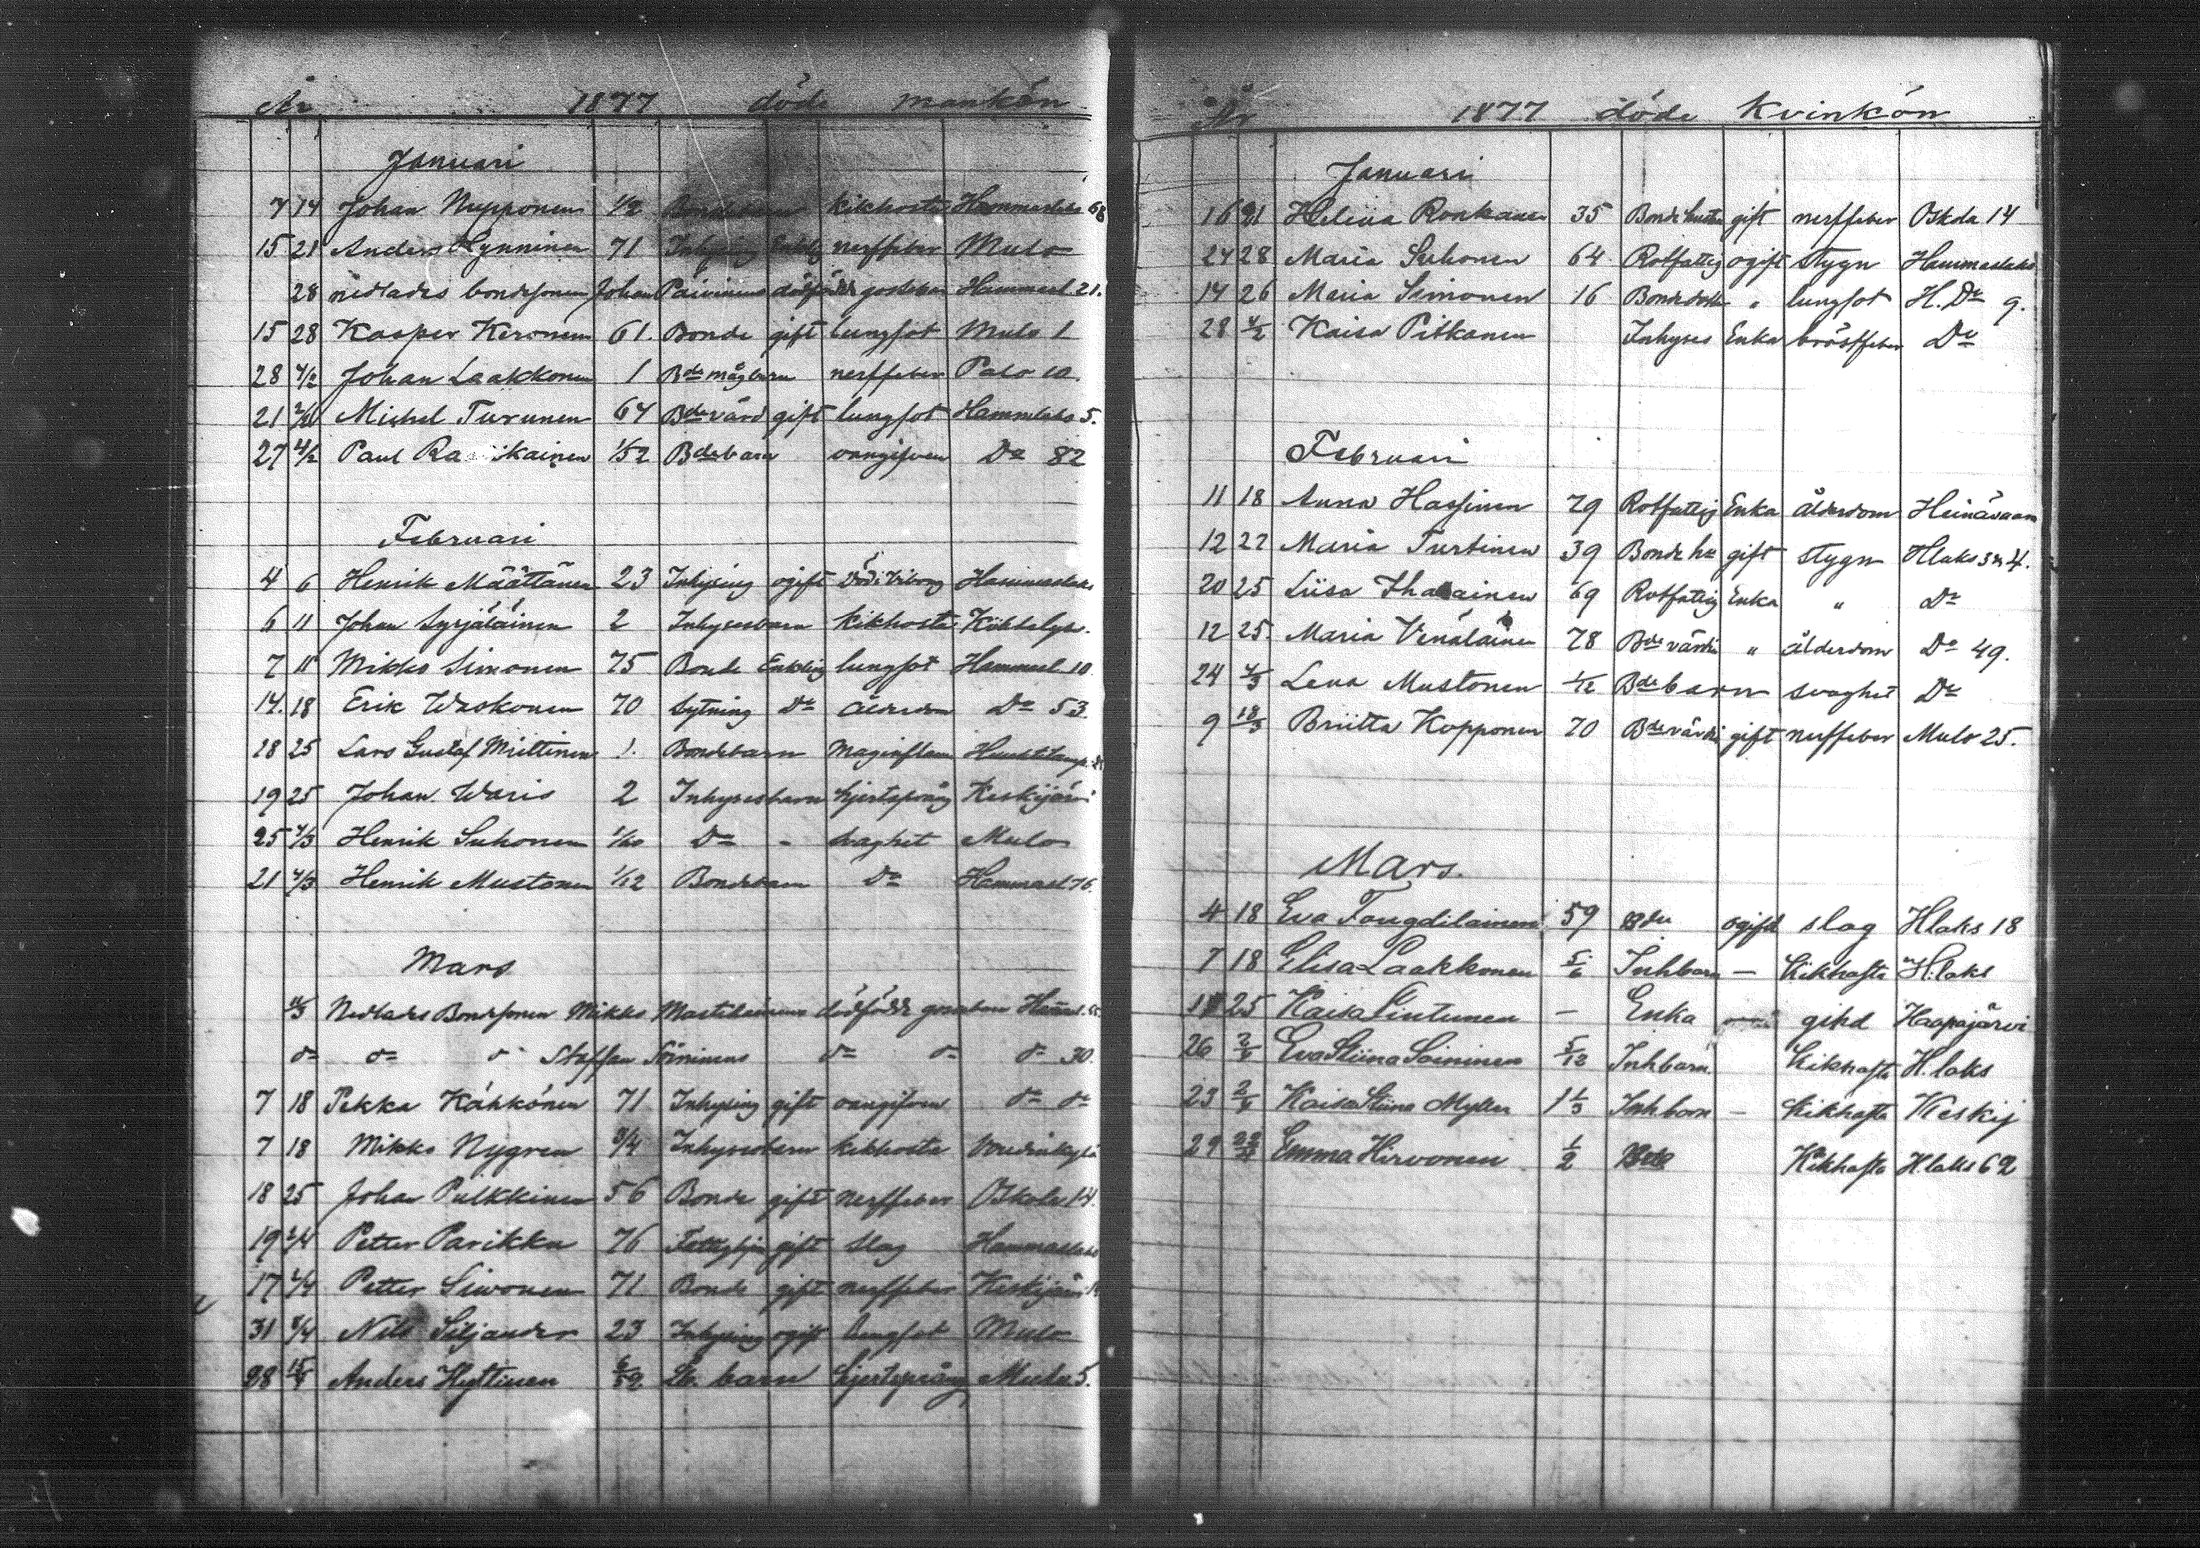 År 1877 döde mankön
Januari
7 14 Johan Nupponen 1/2 Bondebarn kikhosta Hammaslaks 68
15 21 Anders Hynninen 71 Inhysing Enkling nerffeber Mulo
28 nedlades bondesonen Johan Päivinens dödfödde gossebarn Hammasl 21.
15 28 Kasper Keronen 61. Bonde gift lungsot Mulo 1
28 4/2 Johan Laakkonen 1 Bde mågbarn nerffeber Polo 10.
21 2/2 Michel Turunen 64 Bde värd gift lungsot Hammlaks 5.
27 4/2 Paul 1/52 Bdebarn oangifven Do 82
Februari
4 6 Henrik Määttänen 23 Inhysing ogift död i Viborg Hammaslaks
6 11 Johan Syrjäläinen 2 Inhysesbarn kikhosta
7 11 Mikko Simonen 75 Bonde Enkling lungsot Hammasl 10
14. 18 Erik Waskonen 70 Sytning Do ålderdom Do 53.
18 25 Lars Gustaf Miettinen 1. Bondebarn maginflam
19 25 Johan Waris 2 Inhysesbarn hjertsprång Keskijärvi
25 4/3 Henrik Suhonen 1/20 Do - svaghet Mulo
21 4/3 Henrik Mustonen 1/12 Bondebarn Do Hammasl 76.
Mars
11/3 Nedlades Bondsonen Mikko dödfödde gossebarn
do do do Staffan Soininens do do do 30.
7 18 Pekka Kähkönen 71 Inhysing gift oangifven do do
7 18 Mikko Nygren 3/4 Inhysesbarn kikhosta
18 25 Johan Pulkkinen 56 Bonde gift nerffeber Oskola 14.
19 2/4 Petter Parikka 76 gift slag Hammaslaks
17 2/4 Petter Siwonen 71 Bonde gift nerffeber Keskijärvi
31 8/4 Nils Siljander 23 Inhysing ogift lungsot Mulo
28 15/4 Anders Hyttinen 6/52 barn hjertsprång Mulo 5.
År 1877 döde Kvinkön
Januari
16 21 Helina Ronkanen 35 Bondehustru gift nerffeber Oskola 14
24 28 Maria Suhonen 64 Rotfattig ogift stygn Hammaslaks
14 26 Maria Simonen 16 Bondedotter " lungsot H. Do 9.
28 4/2 Kaisa Pitkänen Inhyses Enka bröstfeber Do
Februari
11 18 Anna Hassinen 79 Rotfattig Enka ålderdom Heinävaara
12 27 Maria Turtinen 39 Bonde hu gift stygn Hlaks 3 4.
20 25 Liisa Ihalainen 69 Rotfattig Enka " Do
12 25. Maria Venäläinen 78 Bde värdi " ålderdom Do 49.
24 4/3 Lena Mustonen 1/12 Bde barn svaghet Do
9 18/3 Briitta Kopponen 70 Bde värdi gift nerffeber Mulo 25.
Mars.
4 18 Eva 59 ogift slag Hlaks 18
7 18 Elisa Laakkonen 5/6 Inhbarn — Kikhosta H:laks
11 25 Kaisa Lintunen — Enka — gikt Haapajärvi
26 2/4 Eva Stiina Soininen 5/12 Inhbarn. Kikhosta H.laks
23 2/4 Kaisa Stiina Myller 1 1/3 Inhbarn — Kikhosta Keskij
29 Emma Hirvonen 1/2 Bde Kikhosta H.laks 62